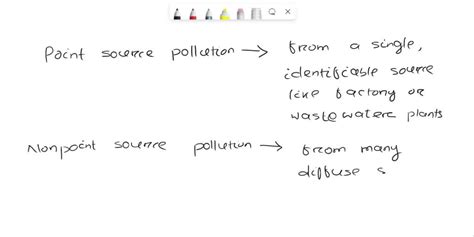 Point source pollution → from a single,
identifiable source
like factory or
wastewater plants
Nonpoint source pollution → from many
diffuse s